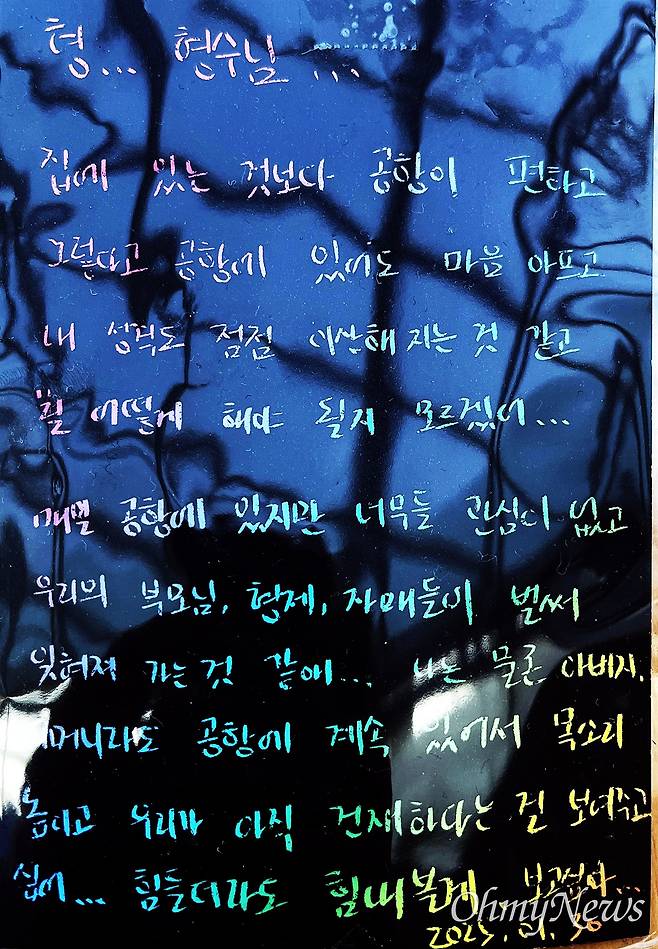 형... 형수님 ...
집에 있는 것보다 공항이 편하고
그렇다고 공항에 있어도 마음 아프고
내 성격도 점점 이상해 지는 것 같고
뭘 어떻게 해야 될지 모르겠어...
매일 공항에 있지만 너무들 관심이 없고
우리의 부모님, 형제, 자매들이 벌써
잊혀져 가는 것 같애... 나는 물론 아버지,
어머니라도 공항에 계속 있어서 목소리
높이고 우리가 아직 건재하다는 걸 보여주고
싶어... 힘들더라도 힘내볼게 보고싶다...
2025. 01. 30
OhmyNews